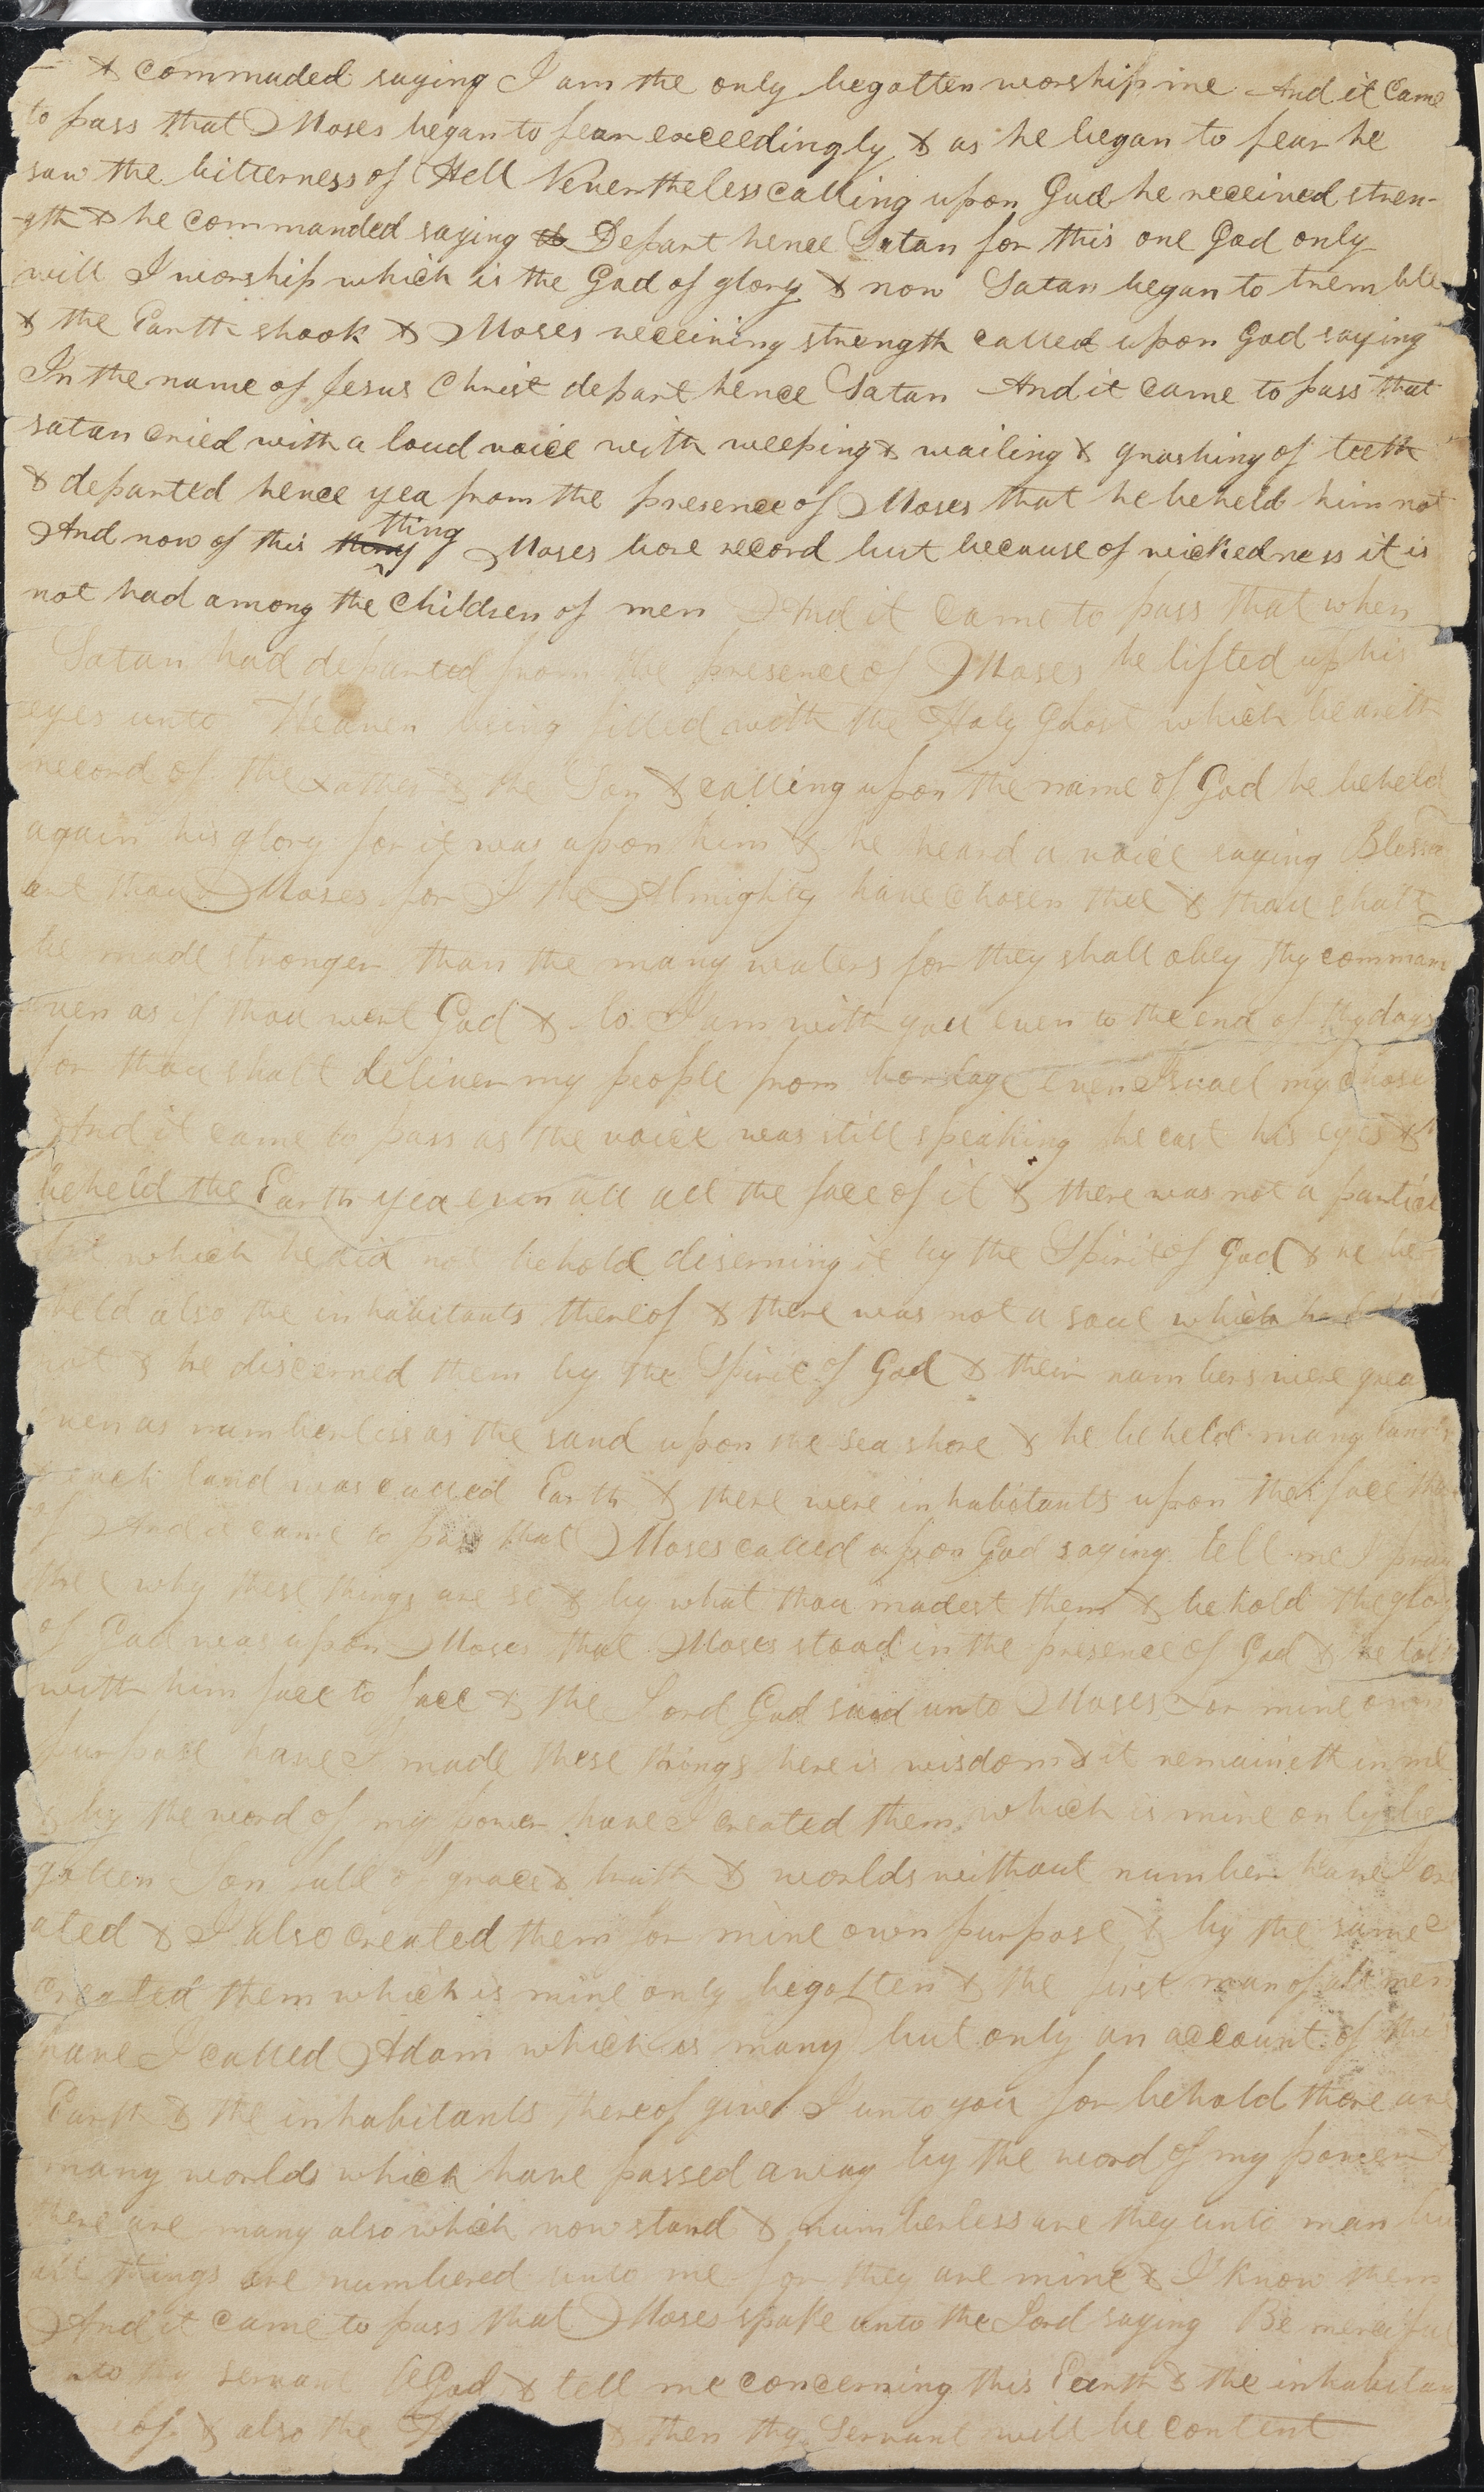 & commuded saying I am the only begotten worship me And it came
to pass that Moses began to fear exceedingly & as he began to fear he
saw the bitterness of Hell Nevertheless calling upon God he received stren-
-gth & he commanded saying Depart hence Satan for this one God only
will I worship which is the God of glory & now Satan began to tremble
& the Earth shook & Moses receiving strength called upon God saying
In the name of Jesus Christ depart hence Satan And it came to pass that
satan cried with a loud voice with weeping & wailing & gnashing of teeth
& departed hence yea from the presence of Moses that he beheld him not
And now of this thing Moses bore record but because of wickedness it is
not had among the children of men And it came to pass that when
Satan had departed from the presence of Moses he lifted up his
eyes unto Heaven being filled with the Holy Ghost which beareth
record of the Father & the Son & calling upon the name of God he beheld
again his glory for it was upon him & he heard a voice saying Blessed
are thou Moses for I the Almighty have chosen thee & thou shalt
be made stronger than the many waters for they shall obey thy comman
even as if thou wert God & lo I am with you even to the end of thy days
for thou shalt deliver my people from bondage even Israel my chose
And it came to pass as the voice was still speaking he cast his eyes &
beheld the Earth yea even all all the face of it & there was not a particl
which he did not behold discerning it by the Spirit of God & he be-
held also the inhabitants thereof & there was not a soul which he
not & he discerned them by the Spirit of God & their numbers were grea
even as numberless as the sand upon the sea shore & he beheld many lands
& each land was called Earth & there were inhabitants upon the face the
of And it came to pass that Moses called upon God saying tell me I pray
thee why these things are so & by what thou madest them & behold the glory
of God was upon Moses that Moses stood in the presence of God & he talk
with him face to face & the Lord God said unto Moses For mine own
purpose have I made these things here is wisdom & it remaineth in me
& by the word of my power have I created them which is mine only be
gotten Son full of grace & truth & worlds without number have I cre
ated & I also created them for mine own purpose & by the same I
created them which is mine only begotten & the first man of all men
have I called Adam which is many but only an account of this
Earth & the inhabitants thereof give I unto you for behold there are
many worlds which have passed away by the word of my power &
there are many also which now stand & numberless are they unto man bu
all things are numbered unto me for they are mine & I know them
And it came to pass that Moses spake unto the Lord saying Be merciful
unto thy servant O God & tell me concerning this Earth & the inhabitan
eof & also the & then thy Servant will be content